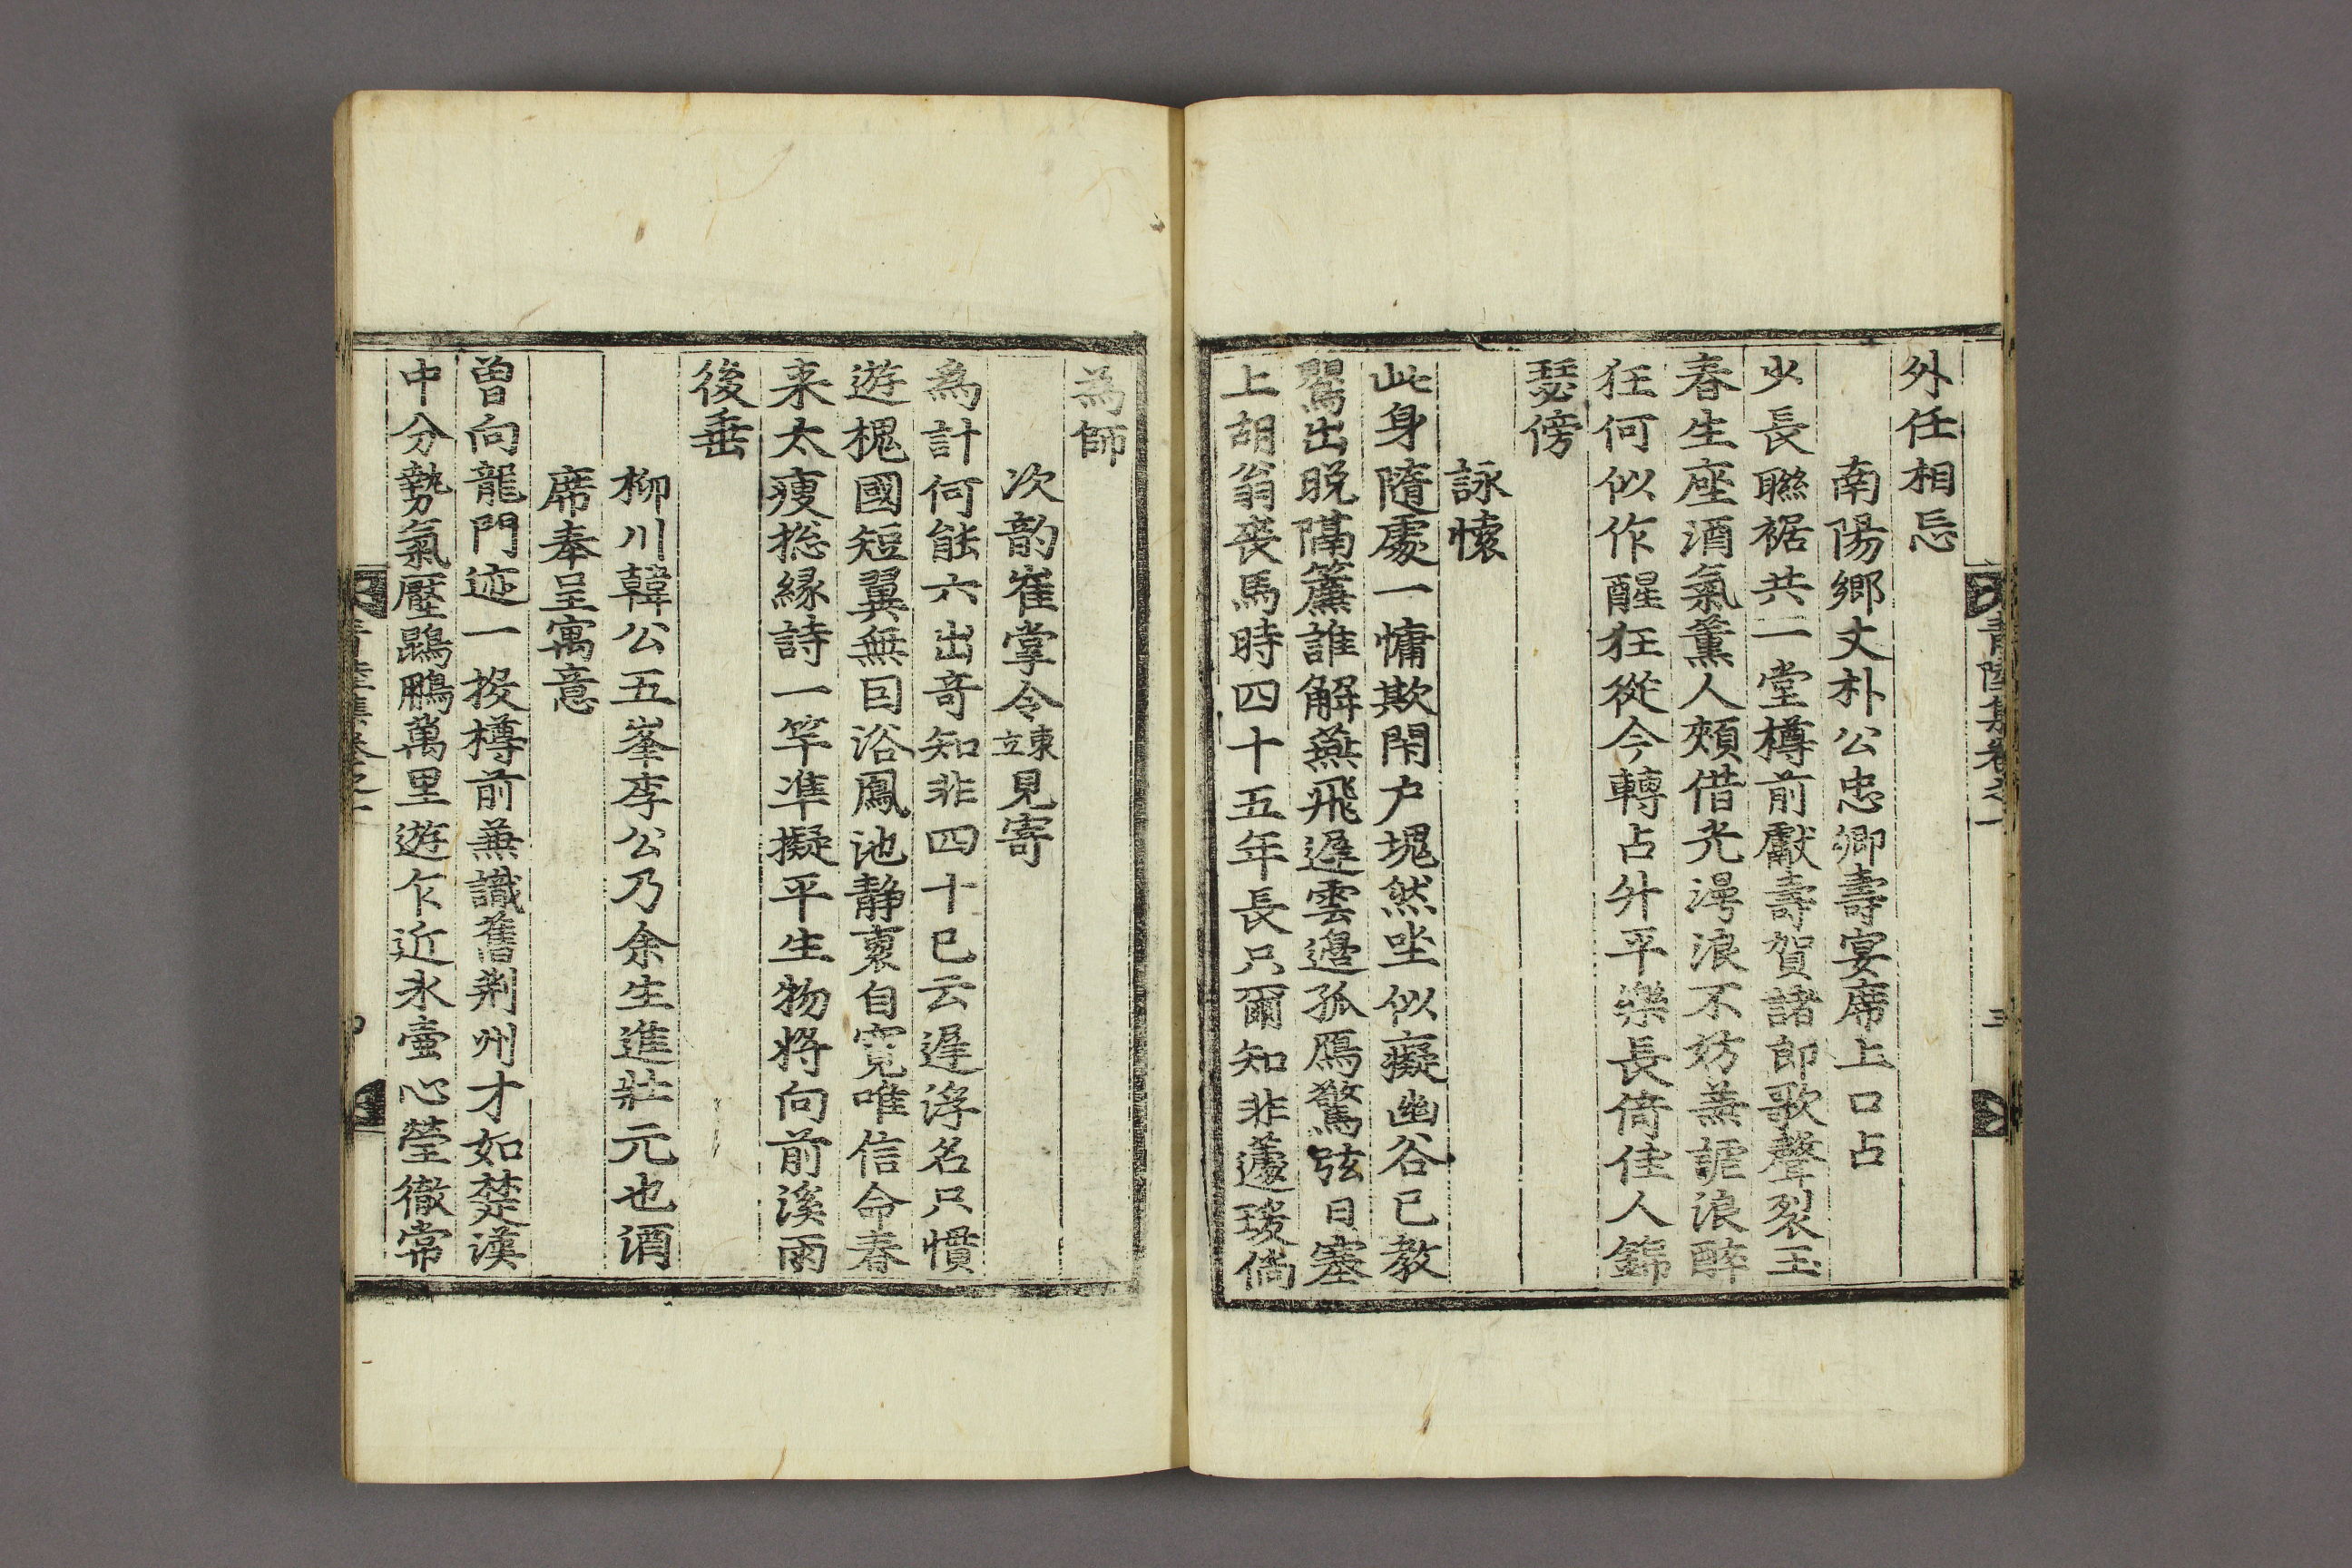 外任相忘
南陽鄉丈朴公忠卿壽宴席上口占
少長聯裾共一堂樽前獻壽賀諸郎歌聲裂玉
春生座酒氣薰人頰借光漫浪不妨兼謔浪醉
狂何似作醒狂從今轉占升平樂長倚佳人錦
瑟傍
詠懷
此身隨處一慵欺閑户塊然坐似癡幽谷已教
鸎出晩隔簾誰解燕飛遲雲邊孤鴈驚弦日塞
上胡翁丧馬時四十五年長只爾知非蘧瑗倘
為師
次韵崔掌令竦見寄
為計何能六出奇知非四十已云遲浮名只慣
遊槐國短翼無因浴鳳池靜裏自寬唯信命春
来太瘦揔緣詩一竿準擬平生物将向前溪雨
後垂
柳川韓公五峯李公乃余生進壯元也酒
席奉呈寓意
曾向龍門迹一投樽前兼識舊荆州才如楚漢
中分勢氣壓鵾鵬萬里遊乍近氷壺心瑩徹常